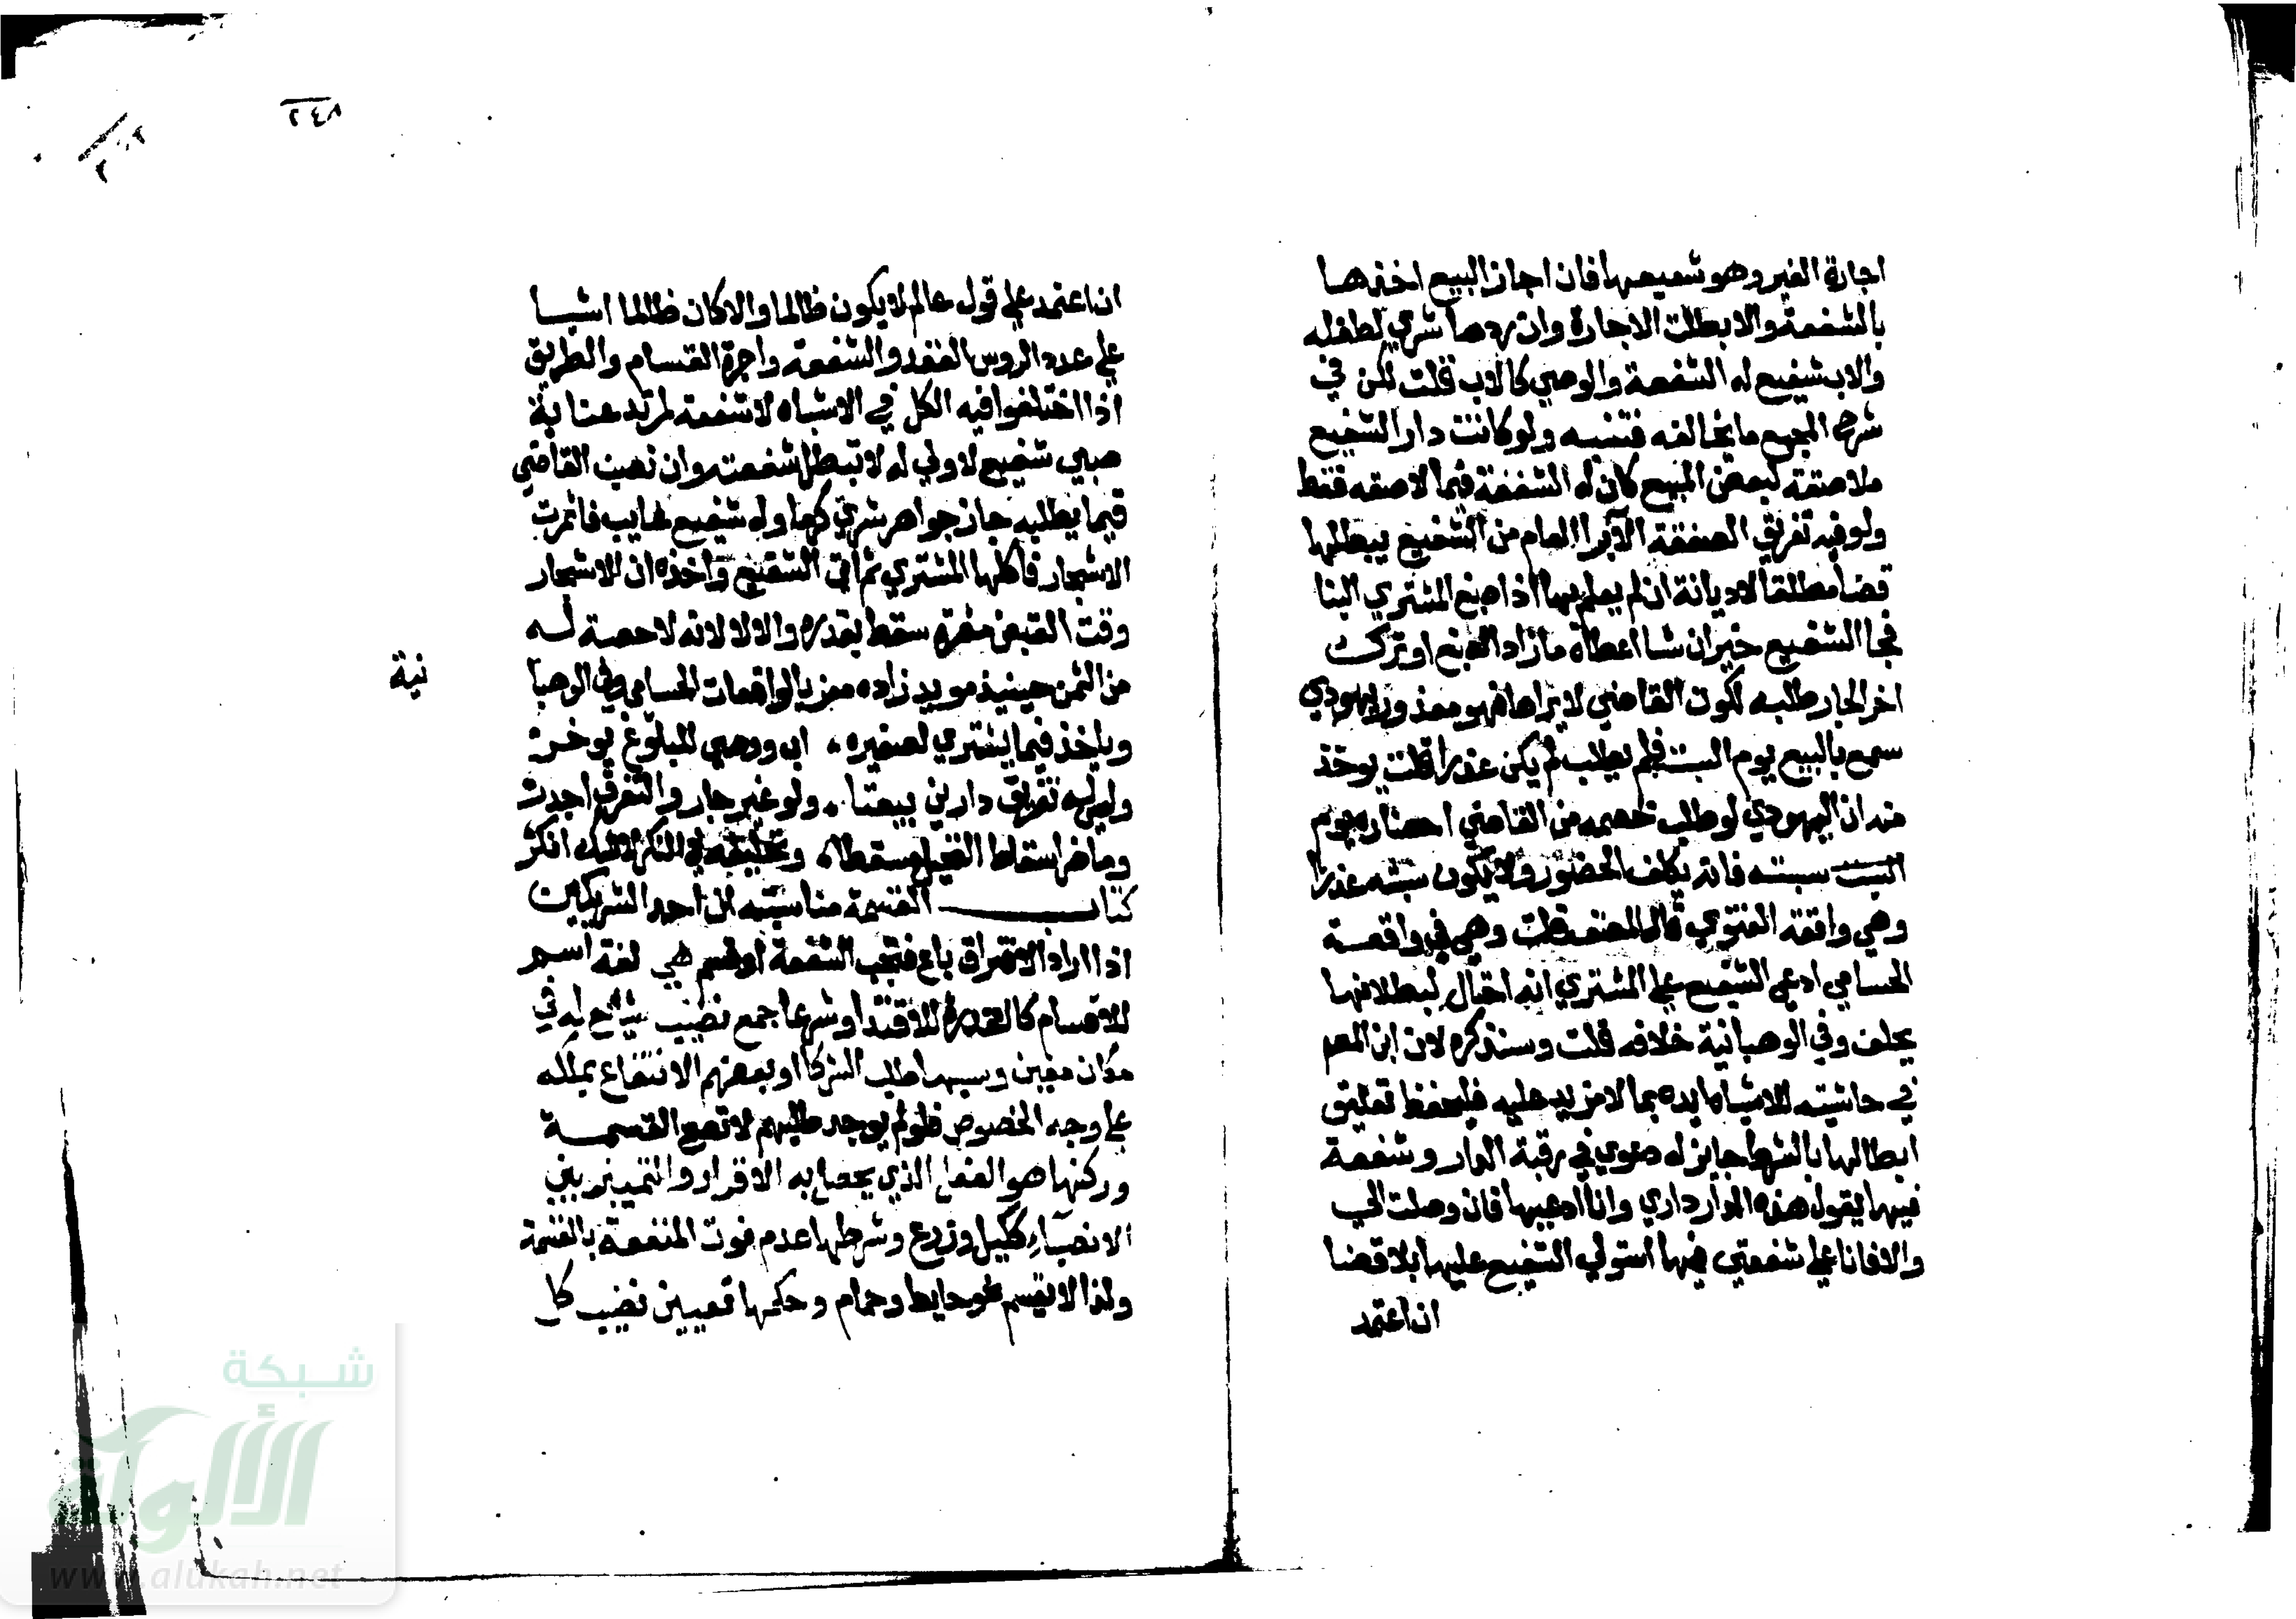 اجارة الغير وهو شفيعها فان اجاز البيع اخذها
بالشفعة والا بطلت الاجارة وان ردها شري لطفله
والاب شفيع له الشفعة والوصي كالاب قلت لكن في
شرح المجمع ما يخالفه فتنبه ولو كانت دار الشفيع
ملاصقة لبعض المبيع كان له الشفعة فيما لاصقه فقط
ولو فيه تفريق الصفقة الابرا العام من الشفيع يبطلها
قضا مطلقا لا ديانة ان لم يعلم بها اذا صبغ المشتري البنا
فجا الشفيع خير ان شا اعطاه ما زاد الصبغ او ترك
اخر الجار طلبه لكون القاضي لا يراها فهو معذور يهودي
سمع بالبيع يوم السبت فلم يطلب لم يكن عذرا قلت يوخذ
منه ان اليهودي لو طلب خصمه من القاضي احضاره يوم
السبت سبته فانه يكلف الحضور ولا يكون سبته عذرا
وهي واقعة الفتوي قال المصنف قلت وهي في واقعة
الحسامي ادعي الشفيع علي المشتري انه احتال لبطلانها
يحلف وفي الوهبانية خلافه قلت وسنذكره لان ابن المصـ
في حاشيته للاشباه ايده بما لا مزيد عليه فليحفظ تعليق
ابطالها بالشرط جايز له دعوي في رقبة الدار وشفعة
فيها يقول هذه الدار داري وانا ادعيها فان وصلت الي
والا فانا علي شفعتي فيها استولي الشفيع عليها بلا قضا
ان اعتمد
٢٤٨
ان اعتمد علي قول عالم لا يكون ظالما والا كان ظالما اشيا
علي عدد الروس العقد والشفعة واجرة القسام والطريق
اذا اختلفوا فيه الكل في الاشباه لا شفعة لمرتد عناية
صبي شفيع لا ولي له لا تبطل شفعته وان نصب القاضي
قيما يطلبه جاز جواهر شري كرما وله شفيع غايب فاثمرت
الاشجار فاكلها المشتري ثم اتي الشفيع واخذه ان للاشجار
وقت القبض مثمرة سقط بقدره والا لا لانه لا حصة له
من الثمن حينيذ مويد زاده معزيا لواقعات الحسامي وفي الوهبا
نية
وياخذ فيما يشتري لصغيره ، اب ووصي للبلوغ يوخر
وليس له تفريق دارين بيعتا ، ولو غير جار والتفرق اجدر
وما ضر اسقاط التحيل مسقطا ، وتحليفه في النكر لا شك انكر
كتاب القسمة مناسبته ان احد الشريكين
اذا اراد الافتراق باع فتجب الشفعة او قسم هي لغة اسم
للاقتسام كالقدوة للاقتدا وشرعا جمع نصيب شايع له في
مكان معين وسببها طلب الشركا او بعضهم الانتفاع بملكه
علي وجه الخصوص فلو لم يوجد طلبهم لا تصح القسمة
وركنها هو الفعل الذي يحصل به الافراز والتمييز بين
الانصباء ككيل وذرع وشرطها عدم فوت المنفعة بالقسمة
ولذا لا يقسم نحو حايط وحمام وحكمها تعيين نصيب كل
شبكة
الألوكة
www.alukah.net